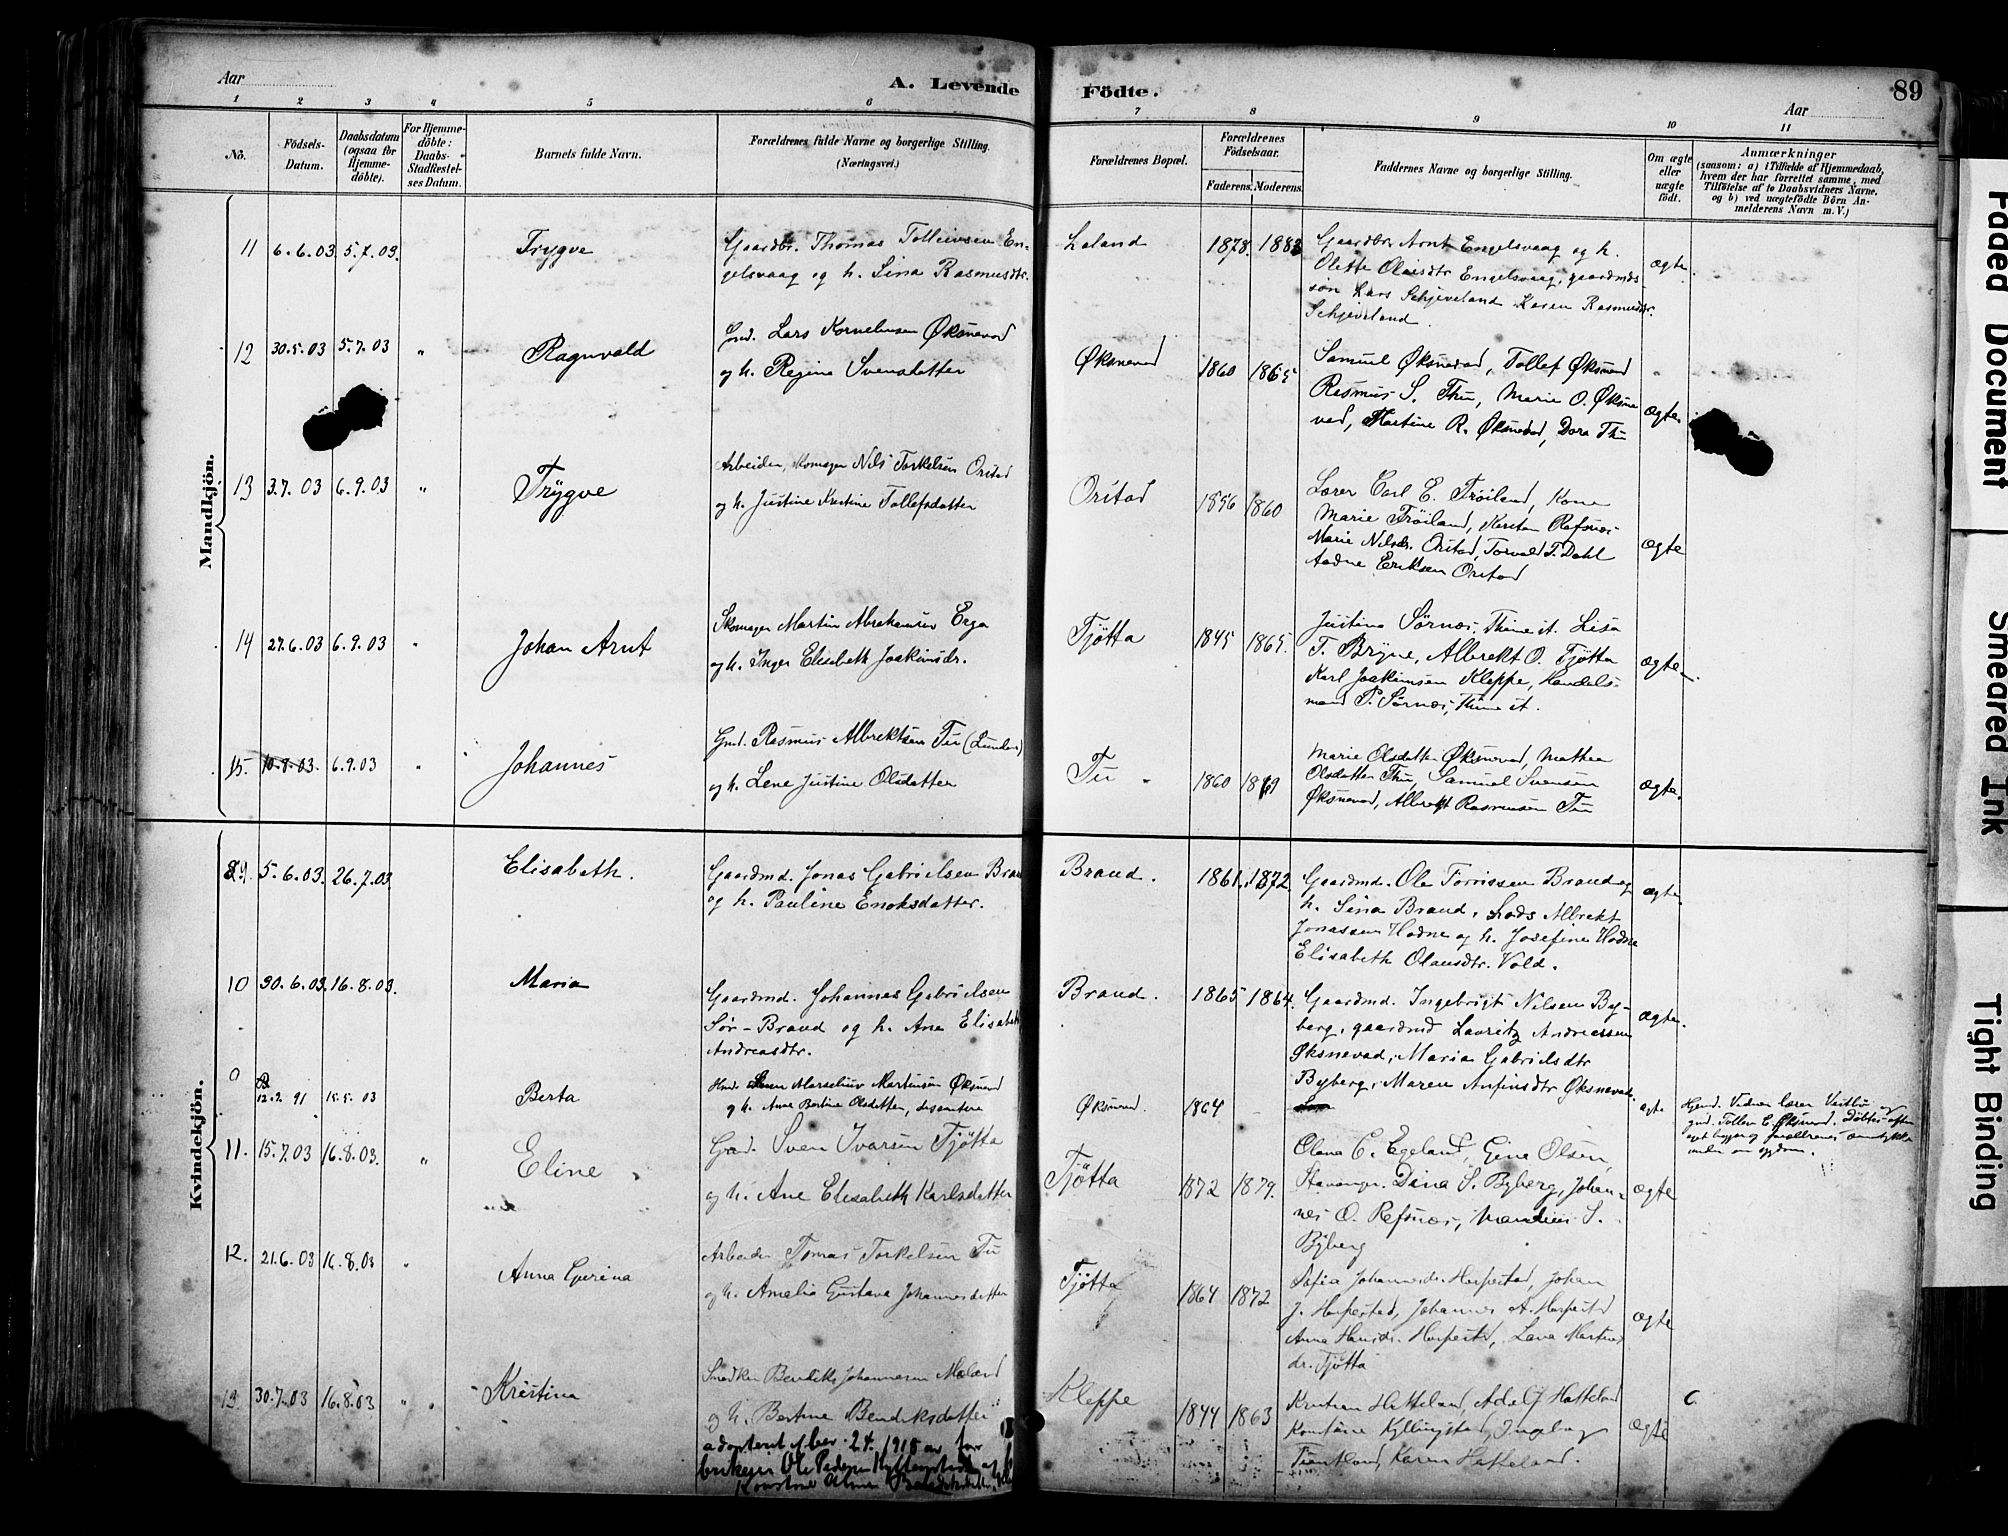 Aar
A. Levende
Födte.
Aar
89
1 2 3 4 5 6 7 8 9 10 11
No.
Födsels-Datum.
Daabsdatum (ogsaa for Hjemme-döbte).
For Hjemme-döbte: Daabs-Stadfæstelses Datum.
Barnets fulde Navn.
Forældrenes fulde Navne og borgerlige Stilling. (Næringsvei.)
Forældrenes Bopæl.
Forældrenes Födselsaar.
Faderens. Moderens.
Faddernes Navne og borgerlige Stilling.
Om ægte eller uægte födt.
Anmærkninger
(saasom: a) i Tilfælde af Hjemmedaab,
hvem der har forrettet samme, med
Tilföielse af to Daabsvidners Navne,
og b) ved uægtefödte Börn An-
melderens Navn m. V.)
Mandkjön.
11 6.6.03 5.7.03. Trygve
Gaardbr. Thomas Tolleivsen En-
gelsvaag og h. Sina Rasmusdtr.
Laland 1878. 1883
Gaardbr. Arnt Engelsvaag og h.
Olette Olaisdtr Engelsvaag, gaardmds
søn Lars Schjeveland Karen Rasmusdtr.
Schjeveland.
ægte.
12 30.5.03 5.7.03 " Ragnvald
Gmd. Lars Kornelius­sen Øksnevad
og h. Regine Svensdatter
Øksnevad 1860 1865
Samuel Øksnevad, Tollef Øksnevad
Rasmus S. Thu, Marie O. Øksne
vad, Martine R. Øksnevad, Dora Thu
ægte.
13 3.7.03 6.9.03 " Trygve
Arbeider, skomager Nils Torkelsen Orstad
og h. Justine Kristine Tollefsdatter
Orstad 1856 1860
Lærer Carl E. Frøiland, Kone
Marie Frøiland, Karsten Refsnæs
Marie Nilsdr. Orstad, Torvald T. Dahl
Aadne Eriksen Orstad
ægte
14 27.6.03 6.9.03 " Johan Arnt
Skomager Martin Abrahamsen Erga
og h. Inger Elisabeth Joakimsdr.
Tjøtta 1845 1865.
Justina Sørnæs, Thime st. Lisa
T. Bryne, Albrekt O. Tjøtta
Karl Joakimsen Kleppe, Handels-
mand P. Sørnæs, Thime st.
ægte
15. 10.8.03. 6.9.03 " Johannes
Gmd. Rasmus Albrektsen Tu (Lunden)
og h. Lene Justine Olsdatter
Tu 1860 1869
Marie Olsdatter Øksnevad, Mathea
Olsdatter Thu, Samuel Svensen
Øksnevad, Albregt Rasmussen Tu
ægte.
Kvindekjön.
9. 5.6.03. 26.7.03. Elisabeth.
Gaardmd. Jonas Gabrielsen Braud
og h. Pauline Enoksdatter.
Braud. 1861. 1872.
Gaardmd. Ole Torrissen Braud og
h. Sina Braud, Lods Albrekt
Jonassen Hodne og h. Josefine Hodne
Elisabeth Olausdtr. Vold.
ægte.
10 30.6.03. 16.8.03. Maria
Gaardmd. Johannes Gabrielsen
Sør-Braud og h. Ane Elisabeth
Andreasdtr.
Braud. 1865 1864.
Gaardmd. Ingebrigt Nilsen By-
berg, gaardmd Lauritz Andreassen
Øksnevad, Maria Gabrielsdtr
Byberg, Maren Anfinsdtr Øksnevad.
ægte.
12.2.91 15.5.03 Berta
Marselius Martinsen Øksnevad
og h. Ane Bertine Olsdatter, dissentere
Øksnevad. 1864 -
ægte
11. 15.7.03 16.8.03. " Eline
Gmd. Sven Ivarsen Tjøtta
og h. Ane Elisabeth Karlsdatter
Tjøtta 1872 1879.
Olena C. Egeland, Gina Olsen,
Stavanger, Dina S. Byberg, Johan-
nes O. Refsnæs, S.
Byberg
ægte
12. 21.6.03 16.8.03 " Anna Gurina
Arbeider Tomas Torkelsen Tu
og h. Amalia Gustava Johannesdatter
Tjøtta 1864 1872
Sofia Johannesdr. Horpestad, Johan
J. Horpestad, Johannes A. Horpestad
Anna Hansdr. Horpestad, Lava Martins
dr. Tjøtta
ægte
13. 30.7.03 16.8.03 " Kristina
Snedker Bendik Johannesen Mæland
og h. Bertine Bendiksdatter
adopteret 1918 av fa-
brikeier Ole Pedersen Kyllingstad og
Kleppe 1844 1863
Kristian Hatteland, Adolf Hatteland
Konstanse Kyllingstad, Ingeborg
Karen Hatteland.
ægte
Faded Document
Smeared Ink
Tight Binding